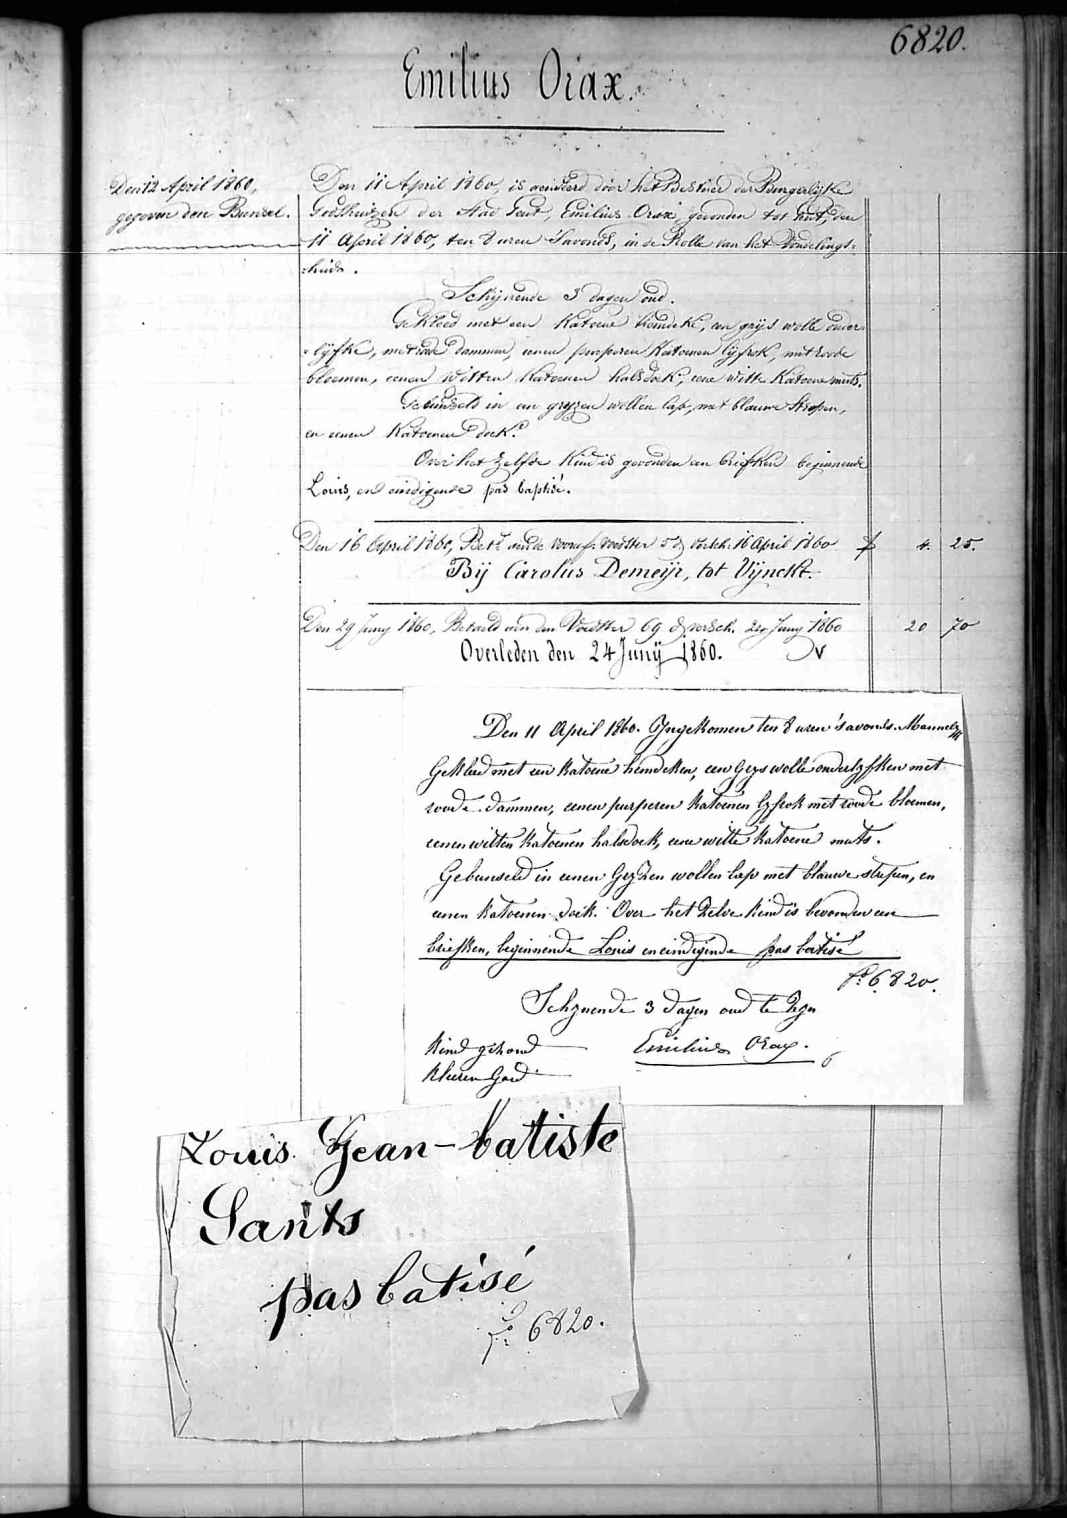 6820.
Emilius Orax.
Den 12 April 1860,
gegeven den Bunsel.
Den 11 April 1860, is aenveerd door het Bestuer der Burgerlyke
Godshuizen der Stad Gent, Emilius Orax, gevonden tot Gent, den
11 April 1860, ten 8 uren 's avonds, in de Rolle van het Vondelings-
-huis.
Schijnende 3 dagen oud.
Gekleed met een Katoene hemdeke, een grijs wolle onder-
-lijfke, met roode dammen, eenen purperen Katoenen lijfrok, met roode
bloemen, eenen witten Katoenen halsdoek, eene witte Katoene muts.
Gebunseld in een gryzen wollen lap, met blauwe strepen,
en eenen Katoenen doek.
Over het zelfde Kind is gevonden een briefken beginnende
Louis, en eindigende pas baptisé.
Den 16 April 1860, Bet. aen de voorn. voedster 5 d. versch. 16 April 1860 4. 25.
Bij Carolus Demeyr, tot Vijnckt.
Den 29 Juny 1860, Betaeld aen den Voedster 69 d. versch. 24 Juny 1860 20 70
Overleden den 24 Junij 1860.
Den 11 April 1860. Yngekomen ten 8 uren 's avonds. Mannelyk
Gekleed met een katoene hemdeken, een grys wolle onderlyfken met
roode dammen, eenen purperen katoenen lyfrok met roode bloemen,
eenen witten katoenen halsdoek, eene witte katoene muts.
Gebunseld in eenen gryzen wollen lap met blauwe strepen, en
eenen katoenen doek. Over het zelve kind is bevonden een
briefken, beginnende Louis en eindigende pas batisé
f° 6820.
Schynende 3 dagen oud te zyn
Kind gezond
Emilius Orax. 6
Kleeren Goed
Louis Jean-batiste
Sants
pas batisé
f° 6820.